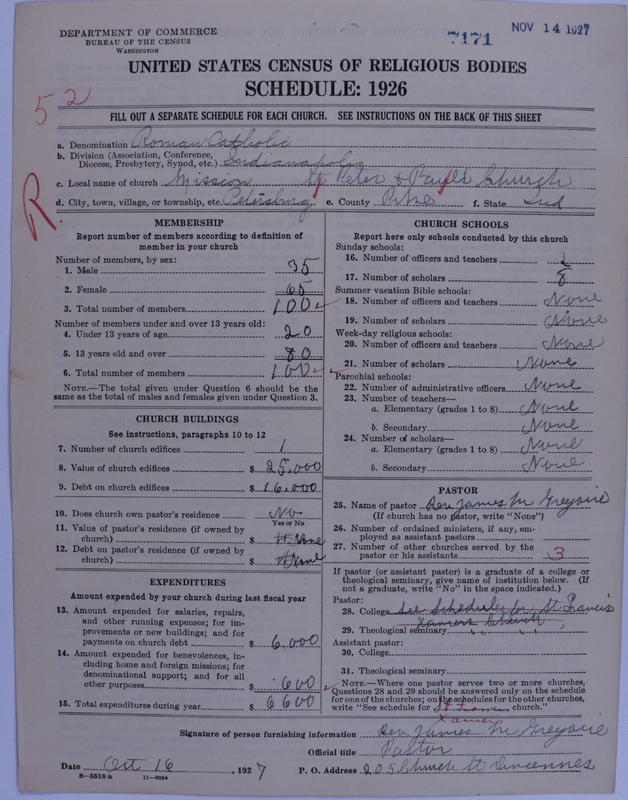 DEPARTMENT OF COMMERCE
BUREAU OF THE CENSUS
WASHINGTON
7171
NOV 14 1927
UNITED STATES CENSUS OF RELIGIOUS BODIES
SCHEDULE: 1926
52
FILL OUT A SEPARATE SCHEDULE FOR EACH CHURCH. SEE INSTRUCTIONS ON THE BACK OF THIS SHEET
R
a. Denomination Roman Catholic
b. Division (Association, Conference, Diocese, Presbytery, Synod, etc.) Indianapolis
c. Local name of church Mission St Peter + Paul's Church
d. City, town, village, or township, etc. Petersburg e. County Pike f. State Ind
MEMBERSHIP
Report number of members according to definition of
member in your church
Number of members, by sex:
1. Male 35
2. Female 65
3. Total number of members 100
Number of members under and over 13 years old:
4. Under 13 years of age 20
5. 13 years old and over 80
6. Total number of members 100
NOTE.—The total given under Question 6 should be the
same as the total of males and females given under Question 3.
CHURCH BUILDINGS
See instructions, paragraphs 10 to 12
7. Number of church edifices 1
8. Value of church edifices $ 25,000
9. Debt on church edifices $ 16,000
10. Does church own pastor's residence No
Yes or No
11. Value of pastor's residence (if owned by
church) $ None
12. Debt on pastor's residence (if owned by
church) $ None
EXPENDITURES
Amount expended by your church during last fiscal year
13. Amount expended for salaries, repairs,
and other running expenses; for im-
provements or new buildings; and for
payments on church debt $ 6,000
14. Amount expended for benevolences, in-
cluding home and foreign missions; for
denominational support; and for all
other purposes $ 600
15. Total expenditures during year $ 6600
CHURCH SCHOOLS
Report here only schools conducted by this church
Sunday schools:
16. Number of officers and teachers 1
17. Number of scholars 8
Summer vacation Bible schools:
18. Number of officers and teachers None
19. Number of scholars None
Week-day religious schools:
20. Number of officers and teachers None
21. Number of scholars None
Parochial schools:
22. Number of administrative officers None
23. Number of teachers—
a. Elementary (grades 1 to 8) None
b. Secondary None
24. Number of scholars—
a. Elementary (grades 1 to 8) None
b. Secondary None
PASTOR
25. Name of pastor Rev James M Gregoire
(If church has no pastor, write "None")
26. Number of ordained ministers, if any, em-
ployed as assistant pastors
27. Number of other churches served by the
pastor or his assistants 3
If pastor (or assistant pastor) is a graduate of a college or
theological seminary, give name of institution below. (If
not a graduate, write "No" in the space indicated.)
Pastor:
28. College See Schedule for St Francis
Xavier Church
29. Theological seminary " " "
Assistant pastor:
30. College
31. Theological seminary
NOTE.—Where one pastor serves two or more churches,
Questions 28 and 29 should be answered only on the schedule
for one of the churches; on the schedules for the other churches,
write "See schedule for St Francis church."
Xavier
Signature of person furnishing information Rev James M Gregoire
Official title Pastor
Date Oct 16, 1927 P. O. Address 205 Church St Vincennes
8—5518 a 11—9054